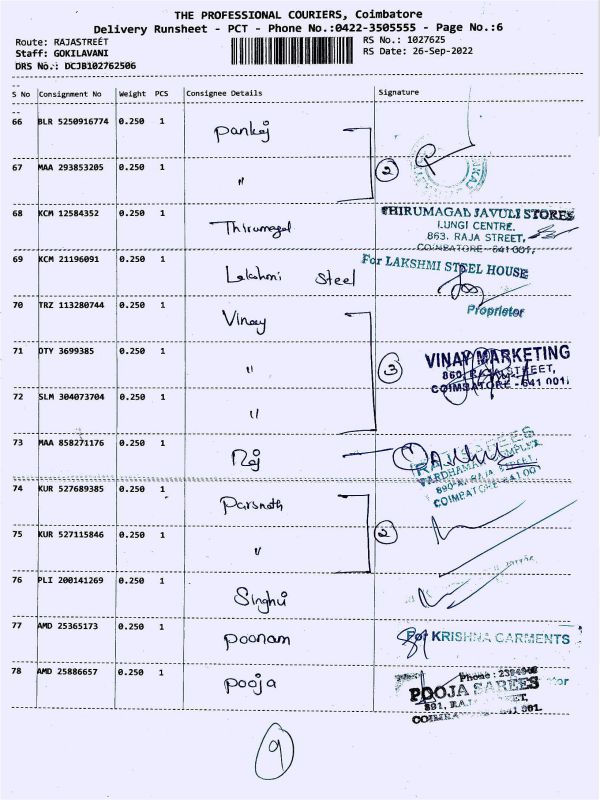 THE PROFESSIONAL COURIERS, Coimbatore
Delivery Runsheet - PCT - Phone No.:0422-3505555 - Page No.:6
Route: RAJASTREET RS No.: 1027625
Staff: GOKILAVANI RS Date: 26-Sep-2022
DRS No.: DCJB102762506
S No Consignment No Weight PCS Consignee Details Signature
66 BLR 5250916774 0.250 1 Pankaj
67 MAA 293853205 0.250 1 " 2
68 KCM 12584352 0.250 1 Thirumagal THIRUMAGAL JAVULI STORES
LUNGI CENTRE.
863. RAJA STREET,
COIMBATORE - 641 001.
69 KCM 21196091 0.250 1 Lakshmi Steel For LAKSHMI STEEL HOUSE
Proprietor
70 TRZ 113280744 0.250 1 Vinay
71 OTY 3699385 0.250 1 " 3 VINAY MARKETING
860, RAJA STREET,
COIMBATORE - 641 001.
72 SLM 304073704 0.250 1 "
73 MAA 858271176 0.250 1 Raj
VARDHAMAN COMPLEX
890-A, RAJA STREET,
COIMBATORE-641001
74 KUR 527689385 0.250 1 Parsnath
75 KUR 527115846 0.250 1 " 2
76 PLI 200141269 0.250 1 Singhvi
77 AMD 25365173 0.250 1 Poonam For KRISHNA GARMENTS
78 AMD 25886657 0.250 1 Pooja
POOJA SAREES
891, RAJ
9